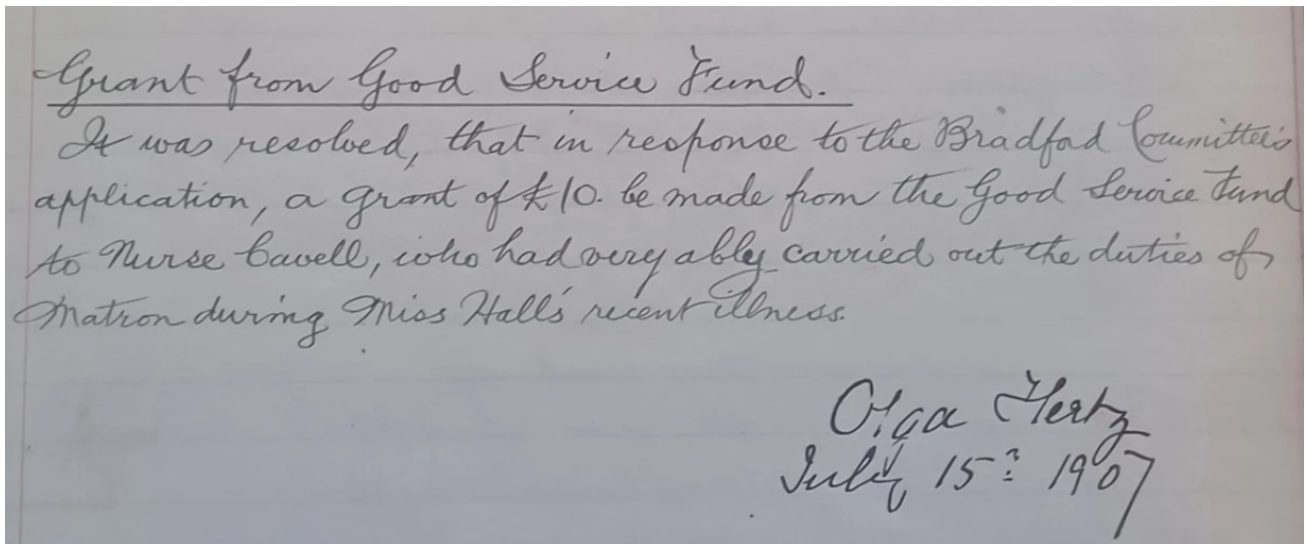 Grant from Good Service Fund.
It was resolved, that in response to the Bradford Committee's
application, a grant of £10. be made from the Good Service Fund
to Nurse Cavell, who had very ably carried out the duties of
Matron during Miss Hall's recent illness.
Olga Hertz
July 15th 1907